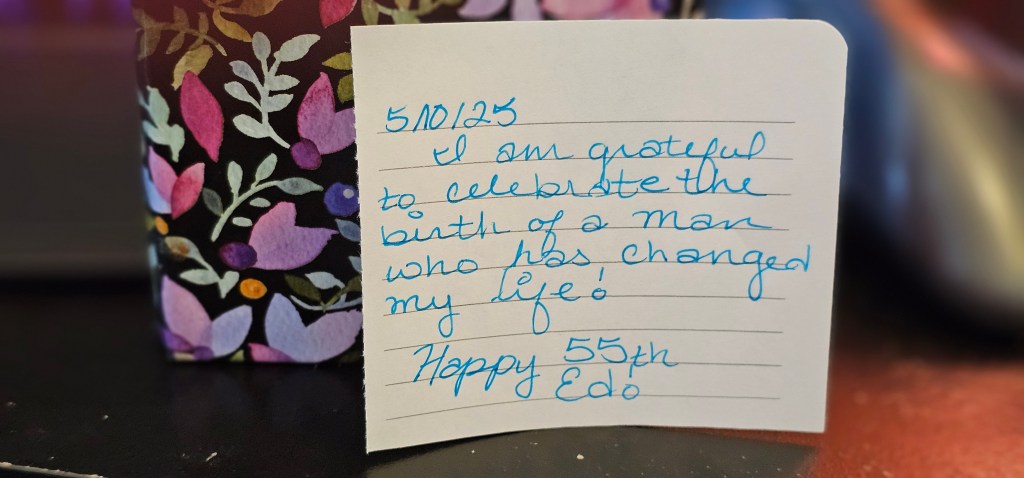 5/10/25
I am grateful
to celebrate the
birth of a man
who has changed
my life!
Happy 55th
Edo